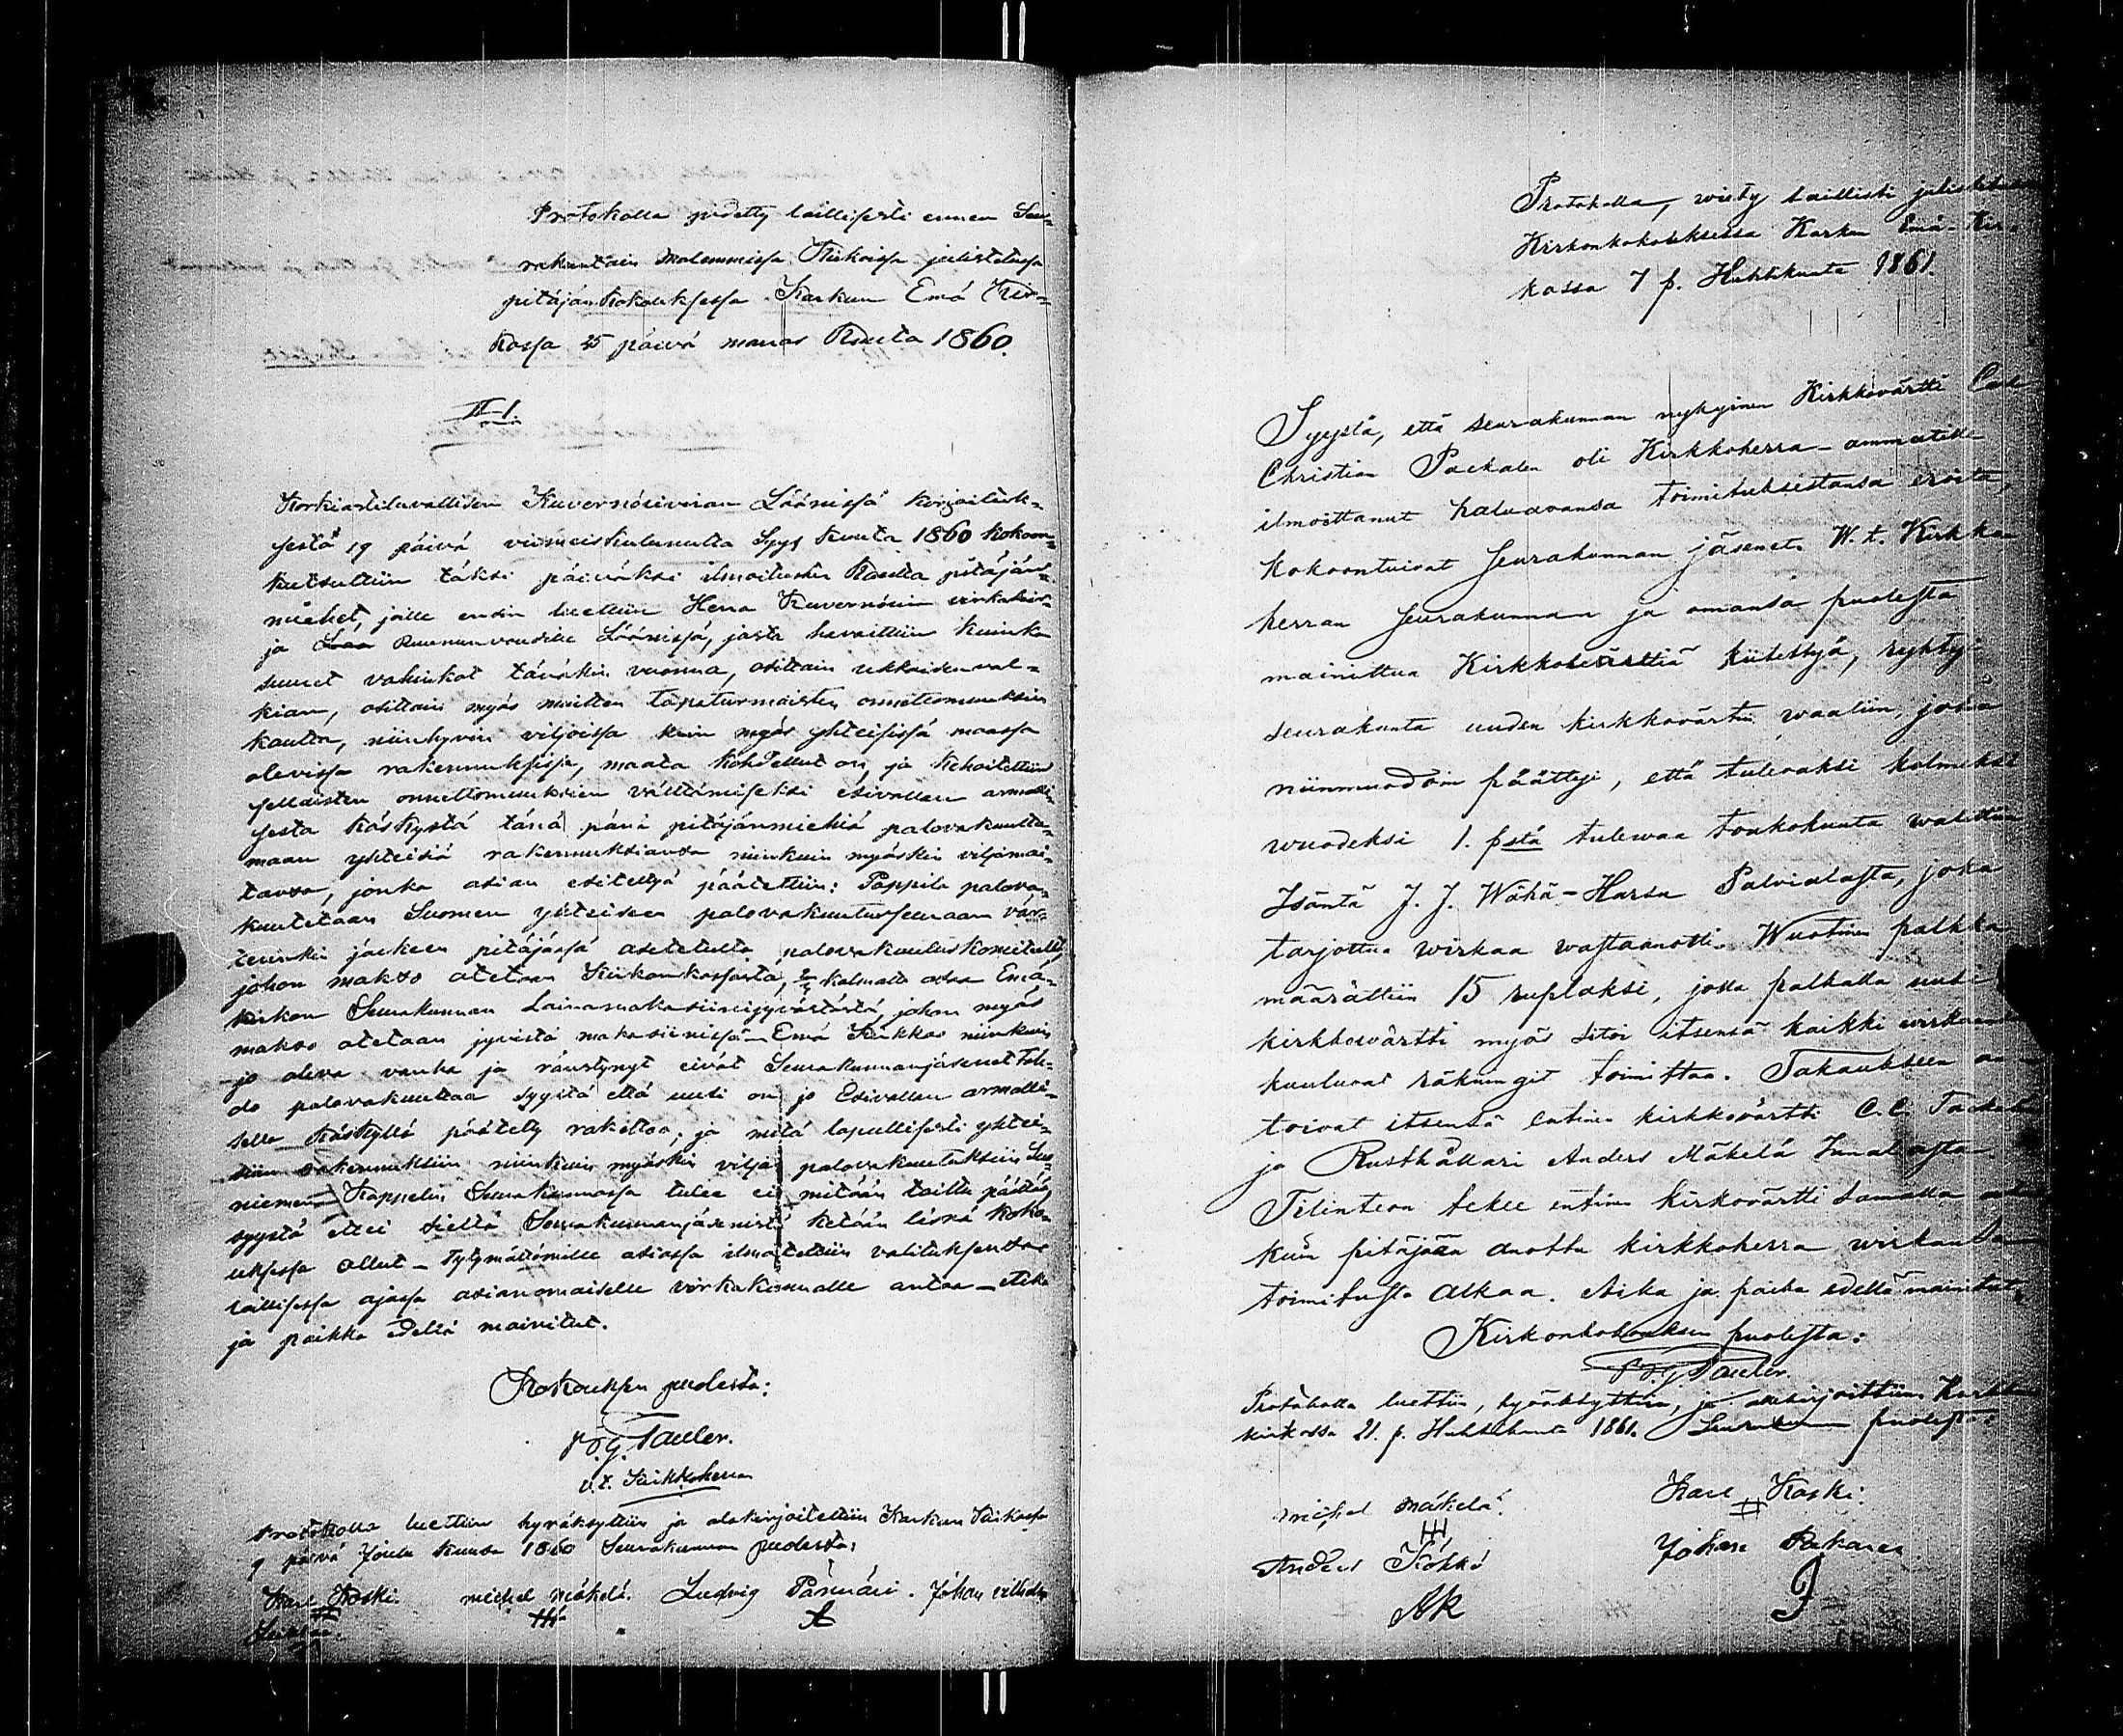 Protokolla pidetty laillisesti ennen Seu-
rakuntain molemmissa Kirkoissa julistetussa
pitäjänkokouksessa Karkun Emä Kir-
kossa 25 päivä marras Kuuta 1860.
II-1.
Korkiastituvallisen Kuvernörinviran Läänissä kirjoituk-
sesta 19 päivä viimeiskulunutta Syys Kuuta 1860 kokoon-
kutsuttiin täksi päiväksi ilmoitusten Kautta pitäjän-
miehet, joille ensin luettiin Herra Kuvernörin virkakir-
ja Ruununvoudille Läänissä, josta havaittiin kuinka
suuret vahinkot tänäkin vuonna, osittain ukkoisen val-
kian, osittain myös muitten tapaturmaisten onnettomuuksien
kautta, niinhyvin viljoissa kuin myös yhteisissä maassa
olevissa rakennuksissa, maata kohdellut on, ja kehoitettiin
sellaisten onnettomuuksien välttämiseksi esivallan armolli-
sesta käskystä tänä pänä pitäjänmiehiä palovakuutta-
maan yhteisiä rakennuksiansa niinkuin myöskin viljamai-
tansa, jonka asian esitettyä päätettiin: Pappila palova-
kuutetaan Suomen yhteiseen palovakuutusseuraan
jälkeen pitäjässä asetetulta palovakuutuskomitealta,
johon makso otetaan Kirkonkassasta, kolmatta osaa Emä-
kirkon Seurakunnan Lainamakasiinijyvästöstä, johon myös
makso otetaan jyvistä makasiinissä - Emä Kirkkoo niinkuin
jo oleva vanha ja ränstynyt eivät Seurakunnanjäsenet tah-
do palovakuuttaa syystä että uusi on jo Esivallan armolli-
sella Käskyllä päätetty rakettaa, ja mitä lopullisesti yhtei-
siin rakennuksiin niinkuin myöskin viljan palovakuutuksiin Suo-
niemen Kappelin Seurakunnassa tulee ei mitään taittu päättää,
syystä ettei sieltä Seurakunnanjäsenistä ketään läsnä koko-
uksessa ollut - Tytymättömille asiassa ilmoitettiin valituksensa
laillisessa ajassa asianomaiselle virkakunnalle antaa - Aika
ja paikka edellä mainitut.
Kokouksen puolesta:
Tauler.
v.t. Kirkkoherra
Protokolla luettiin hyväksyttiin ja alakirjoitettiin Karkun Kirkossa
9 päivä Joulu Kuussa 1860 Seurakunnan puolesta:
Karl Koski. michel mäkelä. Ludvig Pännäri. Johan
Protokolla, wiety laillisti julistetussa
Kirkonkokouksessa Karkun Emä-Kir-
kossa 7 p. Huhtikuuta 1861.
Syystä, että seurakunnan nykyinen Kirkkovärtti Carl
Christian Packalen oli Kirkkoherra-ammatille
ilmoittanut haluavansa toimituksistansa eroita,
kokoontuivat Seurakunnan jäsenet. W.t. Kirkko
herran Seurakunnan ja omansa puolesta
mainittua Kirkkovärttiä kiitettyä, ryhtyi
seurakunta uuden kirkkovärtin waaliin, jossa
niinmuodoin päättyi, että tulevaksi kolmeksi
wuodeksi 1. pstä tulewaa toukokuuta walittiin
Isäntä J. J. Wähä-Harsu Palvialasta, joka
tarjottua wirkaa wastaanotti. Wuotinen palkka
määrättiin 15 ruplaksi, jolla palkalla uusi
kirkkowärtti myös sitoi itsensä kaikki wirkaansa
kuuluvat räkningit toimittaa. Takaukseen an
toivat itsensä entinen kirkkovärtti C. C. Packalen
ja Rusthållari Anders Mäkelä
Tilinteon tekee entinen kirkovärtti samalla
kuin pitäjään anottu kirkkoherra wirkansa
toimitusta alkaa. Aika ja paikka edellä mainitut.
Kirkonkokouksen puolesta:
Tauler.
Protokolla luettiin, hyväksyttiin, ja allekirjoittiin Karkku
kirkossa 21. p. Huhtikuuta 1861. Seurakunnan puolesta:
michel mäkelä. Karl Koski.
Anders Kökkö Johan Pakanen
AK